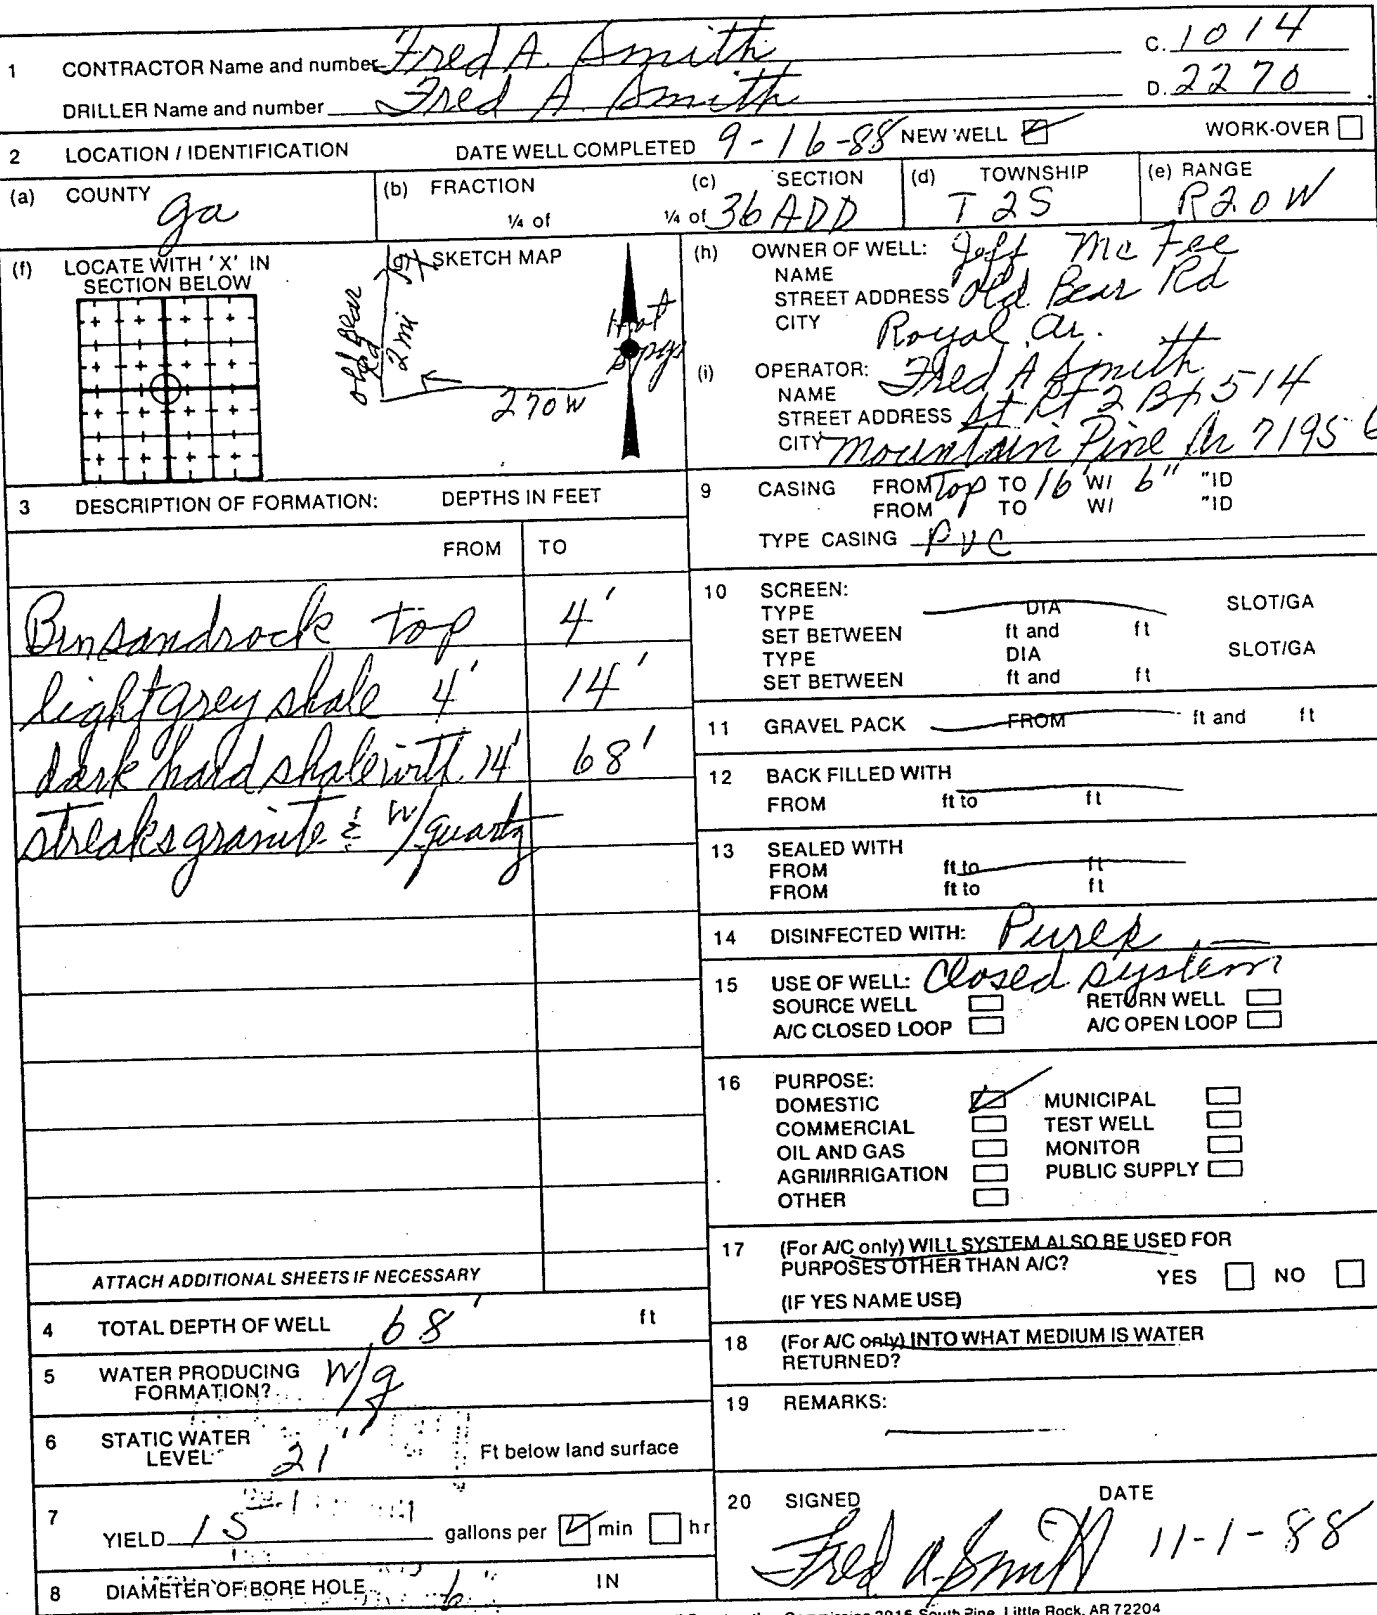 1 CONTRACTOR Name and number Fred A. Smith C. 1014
DRILLER Name and number Fred A. Smith D. 2270
2 LOCATION / IDENTIFICATION DATE WELL COMPLETED 9-16-88 NEW WELL WORK-OVER
(a) COUNTY ga (b) FRACTION ¼ of ¼ of (c) SECTION 36 ADD (d) TOWNSHIP T 2S (e) RANGE R20W
(f) LOCATE WITH 'X' IN
SECTION BELOW
(g) SKETCH MAP
Old Bear
Road
2 mi
270 W
Hot
Spngs
(h) OWNER OF WELL: Jeff McFee
NAME
STREET ADDRESS Old Bear Rd
CITY Royal Ar.
(i) OPERATOR: Fred A Smith
NAME
STREET ADDRESS St Rt 2 Bx 514
CITY Mountain Pine Ar 71956
3 DESCRIPTION OF FORMATION: DEPTHS IN FEET
FROM TO
Brn sandrock top 4'
light grey shale 4' 14'
dark hard shale with 14' 68'
streaks granite & w/quartz
ATTACH ADDITIONAL SHEETS IF NECESSARY
4 TOTAL DEPTH OF WELL 68' ft
5 WATER PRODUCING
FORMATION? w/g
6 STATIC WATER
LEVEL 21' Ft below land surface
7 YIELD 15 gallons per min hr
8 DIAMETER OF BORE HOLE 6" IN
9 CASING FROM Top TO 16' W/ 6" "ID
FROM TO W/ "ID
TYPE CASING PVC
10 SCREEN:
TYPE DIA SLOT/GA
SET BETWEEN ft and ft
TYPE DIA SLOT/GA
SET BETWEEN ft and ft
11 GRAVEL PACK FROM ft and ft
12 BACK FILLED WITH
FROM ft to ft
13 SEALED WITH
FROM ft to ft
FROM ft to ft
14 DISINFECTED WITH: Purex
15 USE OF WELL: Closed system
SOURCE WELL RETURN WELL
A/C CLOSED LOOP A/C OPEN LOOP
16 PURPOSE:
DOMESTIC MUNICIPAL
COMMERCIAL TEST WELL
OIL AND GAS MONITOR
AGRI/IRRIGATION PUBLIC SUPPLY
OTHER
17 (For A/C only) WILL SYSTEM ALSO BE USED FOR
PURPOSES OTHER THAN A/C? YES NO
(IF YES NAME USE)
18 (For A/C only) INTO WHAT MEDIUM IS WATER
RETURNED?
19 REMARKS:
20 SIGNED DATE
Fred A. Smith 11-1-88
Commission 2915 South Pine, Little Rock, AR 72204